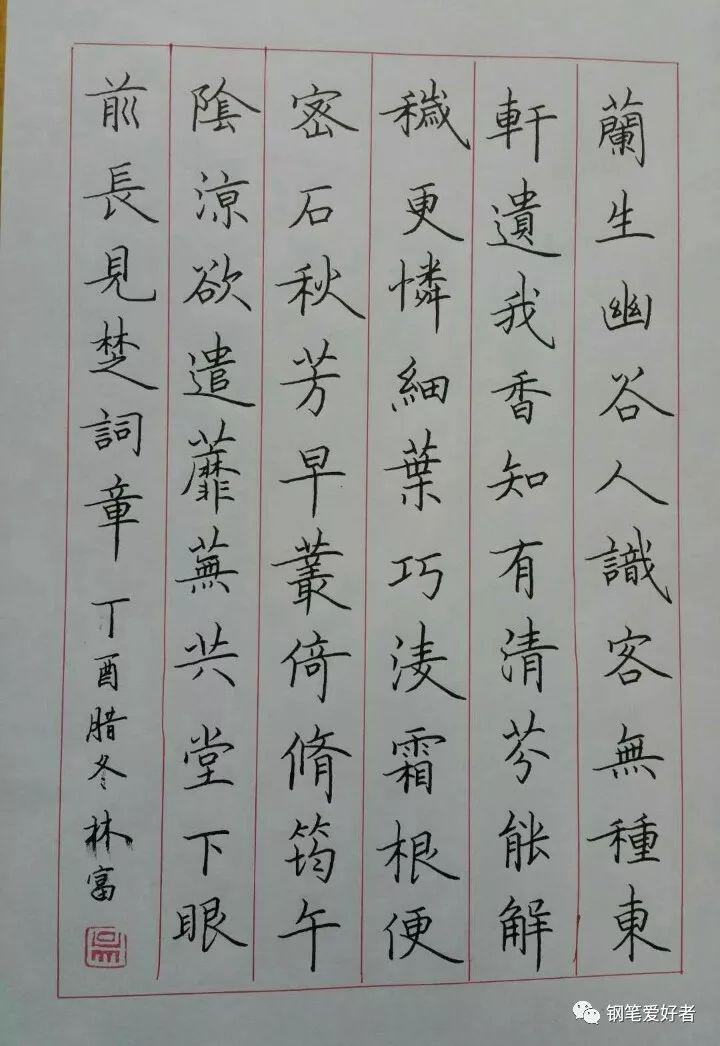 蘭生幽谷人識客無種東
軒遺我香知有清芬能解
穢更憐細葉巧淩霜根便
密石秋芳早叢倚脩筠午
陰涼欲遣蘼蕪共堂下眼
前長見楚詞章丁酉腊冬林富
钢笔爱好者